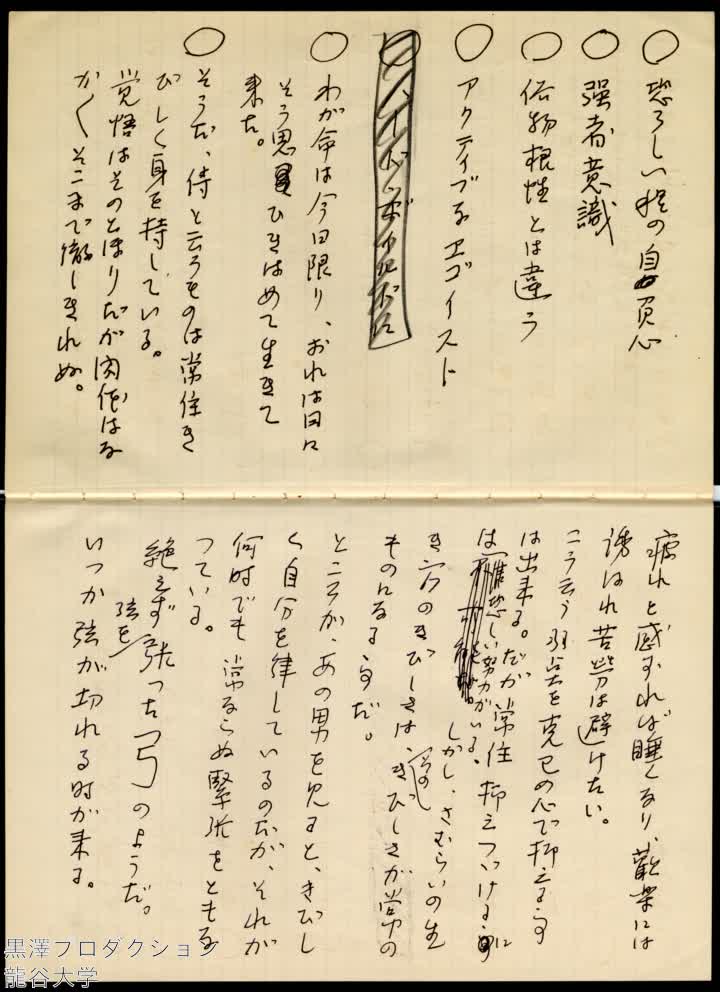 ○ 恐ろしい程の自負心
○ 强者意識
○ 俗物根性とは違う
○ アクティブなエゴイスト
○ わが命は今日限り、おれは日に
そう思ひきはめて生きて
来た。
○ そうだ、侍と云うものは常住き
びしく身を持している。
覚悟はそのとほりだが肉体はな
かくそこまで徹しきれぬ。
疲れと感ずれば睡くなり、歡楽には
誘はれ苦労は避けたい。
こう云う弱点を克己の心で抑える事
は出来る。だが常住抑えつける事に
は、難しい努力がいる、
しかし、さむらいの生
き方のきびしさは、きびしさが常の
ものになる事だ。
ところが、あの男を見ると、きびし
く自分を律しているのだが、それが
何時でも常ならぬ緊張をともな
っている。
絶えず弦を張った弓のようだ。
いつか弦が切れる時が来る。
黒澤プロダクション
龍谷大学